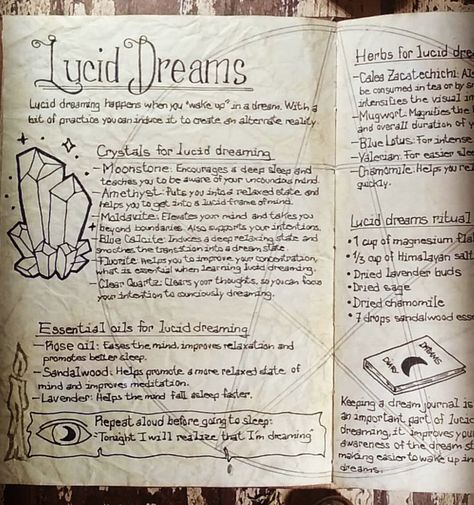 Lucid Dreams
Lucid dreaming happens when you "wake up" in a dream. With a
bit of practice you can induce it to create an alternate reality.
Crystals for lucid dreaming
- Moonstone: Encourages a deep sleep and
teaches you to be aware of your uncoucious mind.
- Amethyst: Puts you into a relaxed state and
helps you to get into a lucid frame of mind.
- Moldavite: Elevates your mind and takes you
beyond boundaries. Also supports your intentions.
- Blue Calcite: Induces a deep relaxing state and
smoothes the transition into a dream state
- Fluorite: Helps you to improve your concentration,
what is essential when learning lucid dreaming.
- Clear Quartz: Clears your thoughts, so you can focus
your intention to counciously dreaming.
Essential oils for lucid dreaming
- Rose oil: Eases the mind, improves relaxation and
promotes better sleep.
- Sandalwood: Helps promote a more relaxed state of
mind and improves meditation.
- Lavender: Helps the mind fall asleep faster.
Repeat aloud before going to sleep:
"Tonight I will realize that I'm dreaming"
Herbs for lucid dre
- Calea Zacatechichi: Al
be consumed in tea or by s
intensifies the visual in
- Mugwort: Magnifies the
and overall duration of y
- Blue Lotus: For intense
- Valerian: For easier slee
- Chamomile: Helps you re
quickly.
Lucid dreams ritual
• 1 cup of magnesium fla
• 1/3 cup of Himalayan salt
• Dried lavender buds
• Dried sage
• Dried chamomile
• 7 drops sandalwood ess
DREAMS
DIARY
Keeping a dream journal is
an important part of lucid
dreaming, it improves your
awareness of the dream st
making easier to wake up in
dreams.